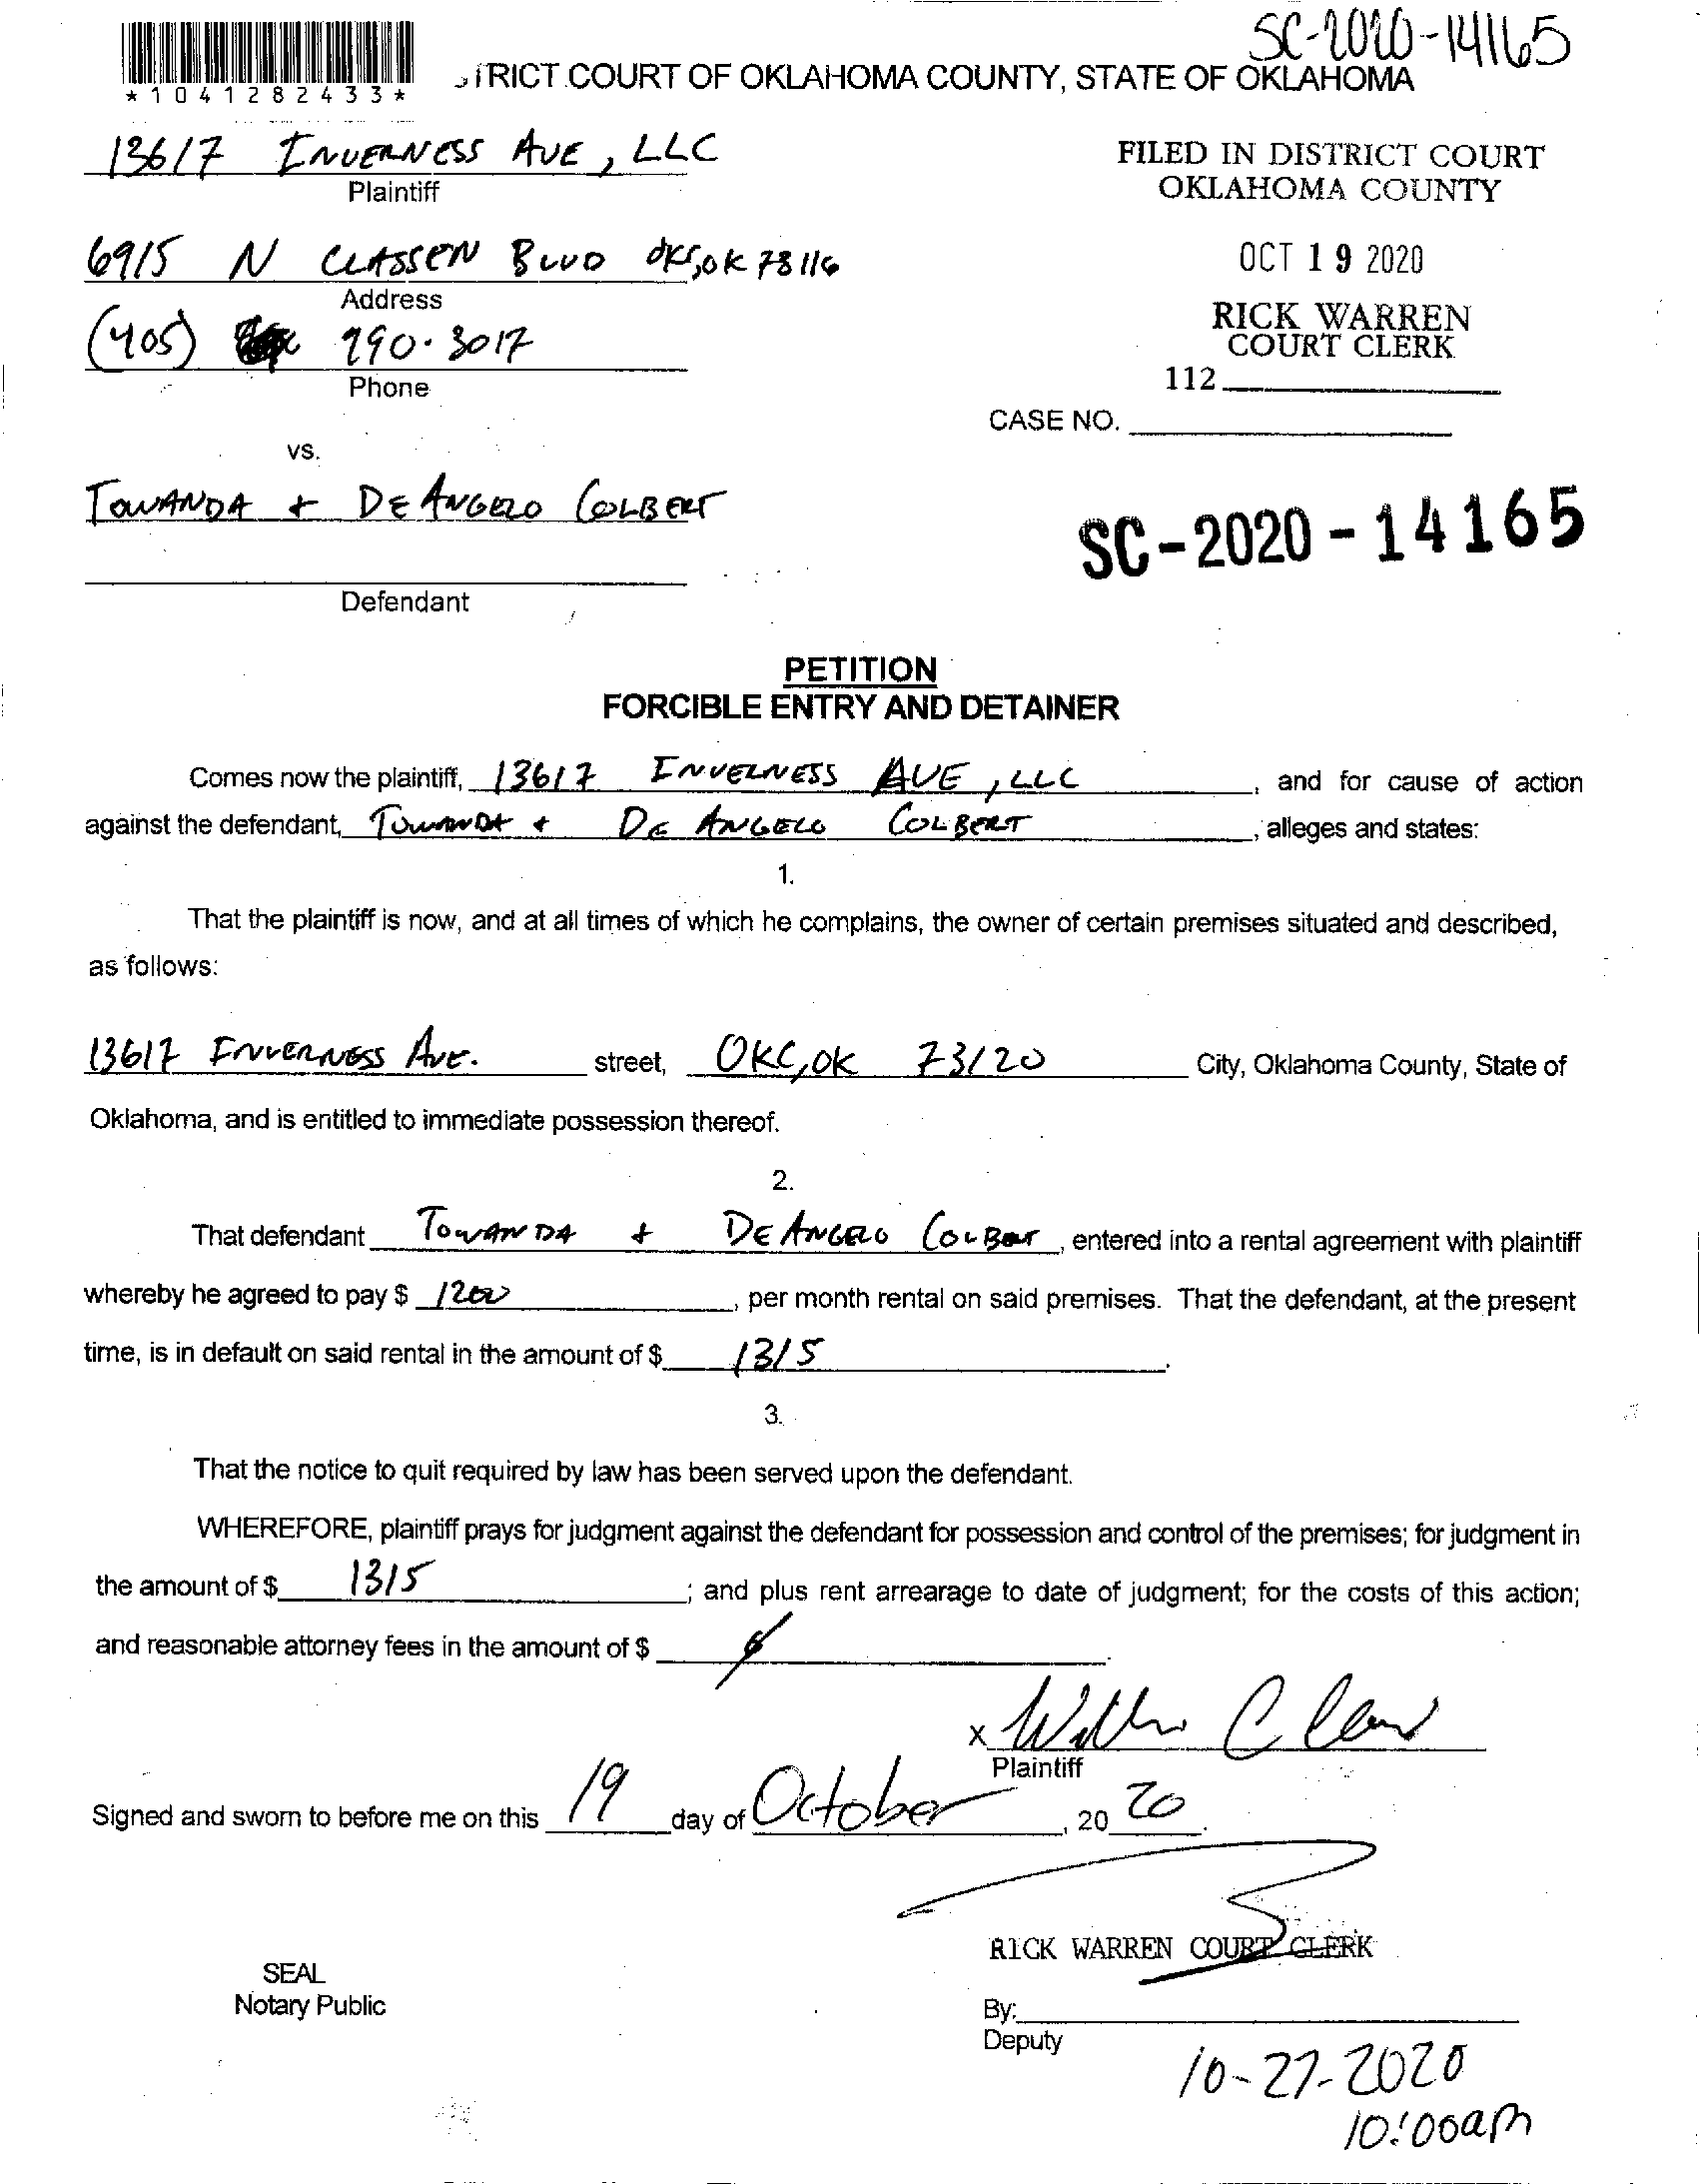 SC-2020-14165
*1041282433*
TRICT COURT OF OKLAHOMA COUNTY, STATE OF OKLAHOMA
13617 INVERNESS AVE, LLC
Plaintiff
FILED IN DISTRICT COURT
OKLAHOMA COUNTY
6915 N CLASSEN BLVD OKC, OK 73116
Address
OCT 19 2020
(405) 990-3017
Phone
RICK WARREN
COURT CLERK
112
CASE NO.
vs.
TOWANDA + DEANGELO COLBERT
Defendant
SC-2020-14165
PETITION
FORCIBLE ENTRY AND DETAINER
Comes now the plaintiff, 13617 INVERNESS AVE, LLC, and for cause of action
against the defendant, TOWANDA + DE ANGELO COLBERT, alleges and states:
1.
That the plaintiff is now, and at all times of which he complains, the owner of certain premises situated and described,
as follows:
13617 INVERNESS AVE. street, OKC, OK 73120 City, Oklahoma County, State of
Oklahoma, and is entitled to immediate possession thereof.
2.
That defendant TOWANDA + DE ANGELO COLBERT, entered into a rental agreement with plaintiff
whereby he agreed to pay $ 1200, per month rental on said premises. That the defendant, at the present
time, is in default on said rental in the amount of $ 1315.
3.
That the notice to quit required by law has been served upon the defendant.
WHEREFORE, plaintiff prays for judgment against the defendant for possession and control of the premises; for judgment in
the amount of $ 1315; and plus rent arrearage to date of judgment; for the costs of this action;
and reasonable attorney fees in the amount of $
X
Plaintiff
Signed and sworn to before me on this 19 day of October, 20 20.
RICK WARREN COURT CLERK
SEAL
Notary Public
By:
Deputy
10-27-2020
10:00am